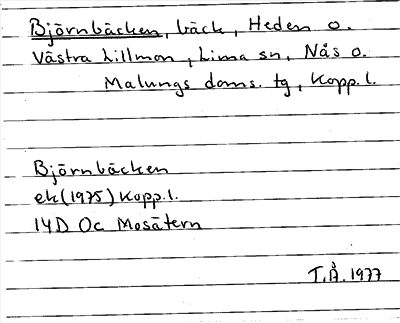 Björnbäcken, bäck, Heden o.
Västra Lillmon, Lima sn, Nås o.
Malungs doms. tg, Kopp. l.
Björnbäcken
ek (1975) Kopp. l.
14D 0c Mosätern
T.Å. 1977